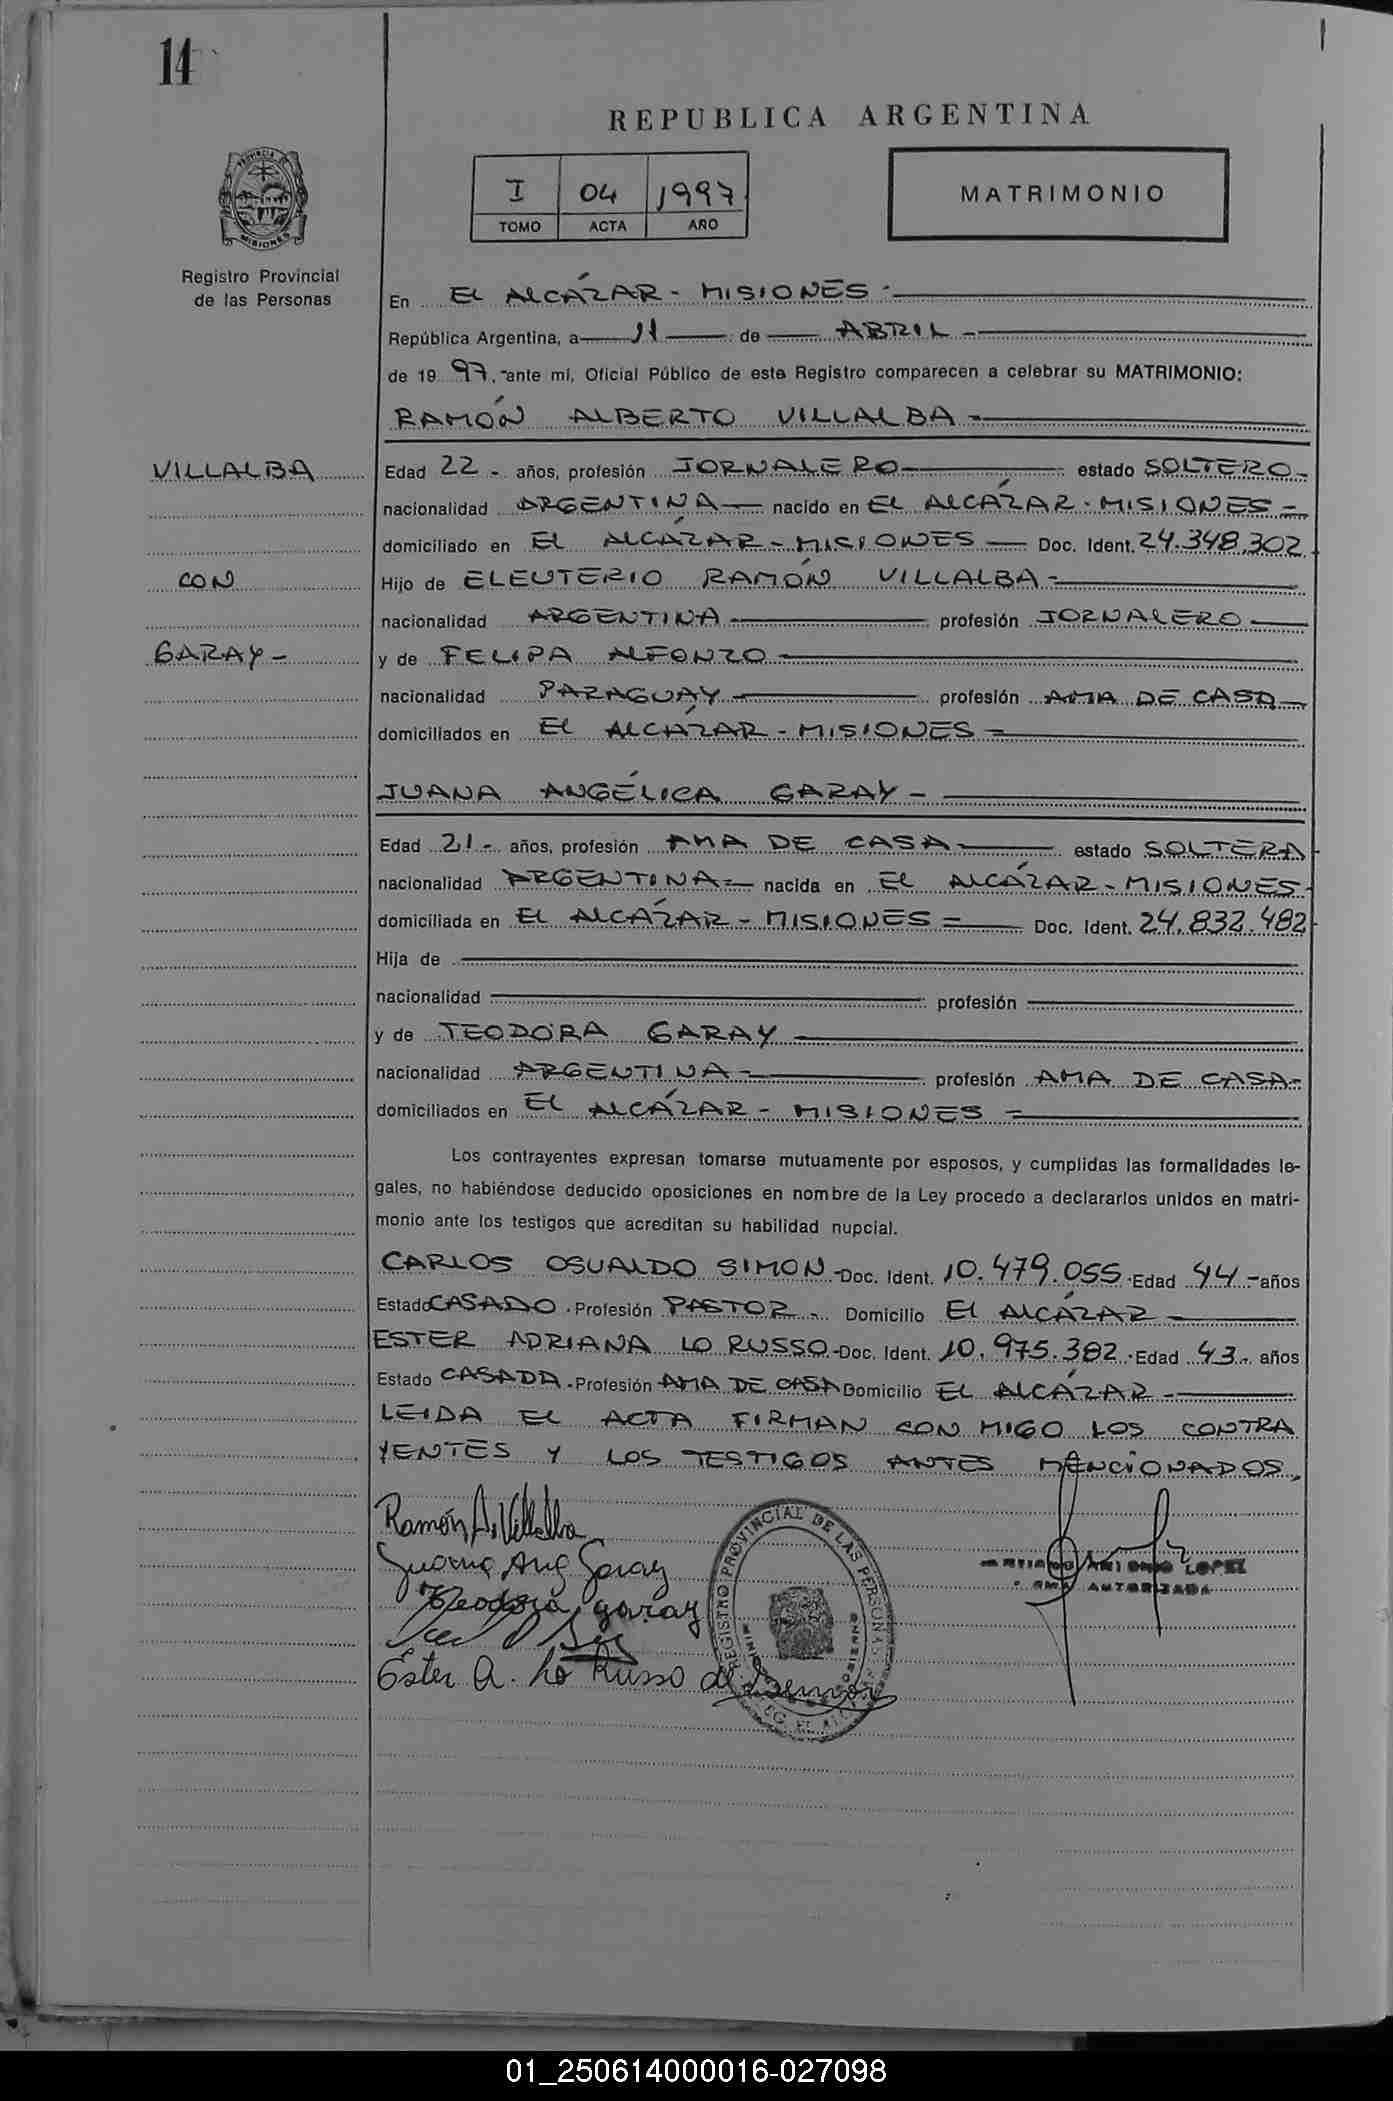 14
REPUBLICA ARGENTINA
I 04 1997
TOMO ACTA AÑO
MATRIMONIO
PROVINCIA DE MISIONES
Registro Provincial
de las Personas
En EL ALCÁZAR - MISIONES -
República Argentina, a 11 de ABRIL -
de 19 97, ante mí, Oficial Público de este Registro comparecen a celebrar su MATRIMONIO:
RAMÓN ALBERTO VILLALBA -
VILLALBA
CON
GARAY -
Edad 22 - años, profesión JORNALERO estado SOLTERO -
nacionalidad ARGENTINA nacido en EL ALCÁZAR - MISIONES -
domiciliado en EL ALCÁZAR - MISIONES Doc. Ident. 24.348.302
Hijo de ELEUTERIO RAMÓN VILLALBA -
nacionalidad ARGENTINA profesión JORNALERO
y de FELIPA ALFONZO
nacionalidad PARAGUAY profesión AMA DE CASA
domiciliados en EL ALCÁZAR - MISIONES -
JUANA ANGÉLICA GARAY -
Edad 21 - años, profesión AMA DE CASA estado SOLTERA
nacionalidad ARGENTINA - nacida en EL ALCÁZAR - MISIONES -
domiciliada en EL ALCÁZAR - MISIONES - Doc. Ident. 24.832.482
Hija de
nacionalidad profesión
y de TEODORA GARAY
nacionalidad ARGENTINA - profesión AMA DE CASA -
domiciliados en EL ALCÁZAR - MISIONES -
Los contrayentes expresan tomarse mutuamente por esposos, y cumplidas las formalidades le-
gales, no habiéndose deducido oposiciones en nombre de la Ley procedo a declararlos unidos en matri-
monio ante los testigos que acreditan su habilidad nupcial.
CARLOS OSVALDO SIMON - Doc. Ident. 10.479.055 - Edad 44 - años
Estado CASADO - Profesión PASTOR - Domicilio EL ALCÁZAR
ESTER ADRIANA LO RUSSO - Doc. Ident. 10.975.382 - Edad 43 - años
Estado CASADA - Profesión AMA DE CASA Domicilio EL ALCÁZAR -
LEIDA EL ACTA FIRMAN CON MIGO LOS CONTRA
YENTES Y LOS TESTIGOS ANTES MENCIONADOS.
Ramón A. Villalba
Juana Ang Garay
Teodora garay
Ester A. Lo Russo de Simon
REGISTRO PROVINCIAL DE LAS PERSONAS
ANTONIO LOPEZ
AUTORIZADA
01_250614000016-027098